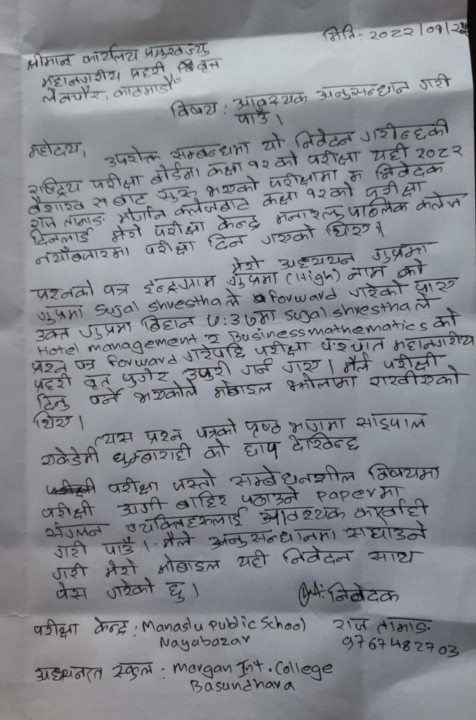 मिति: २०८२/०१/२६
श्रीमान कार्यालय प्रमुखज्यू
महानगरीय प्रहरी वृत्त
लैनचौर, काठमाडौं
विषय: आवश्यक अनुसन्धान गरी
पाउँ।
महोदय,
उपरोक्त सम्बन्धमा यो निवेदन गरीन्छकी
राष्ट्रिय परीक्षा बोर्डना कक्षा १२को परीक्षा यही २०८२
वैशाख बाट सुरु भएको परीक्षामा म निवेदक
राज तामाङ मोर्गान कलेजबाट कक्षा १२को परीक्षा
दिनलाई मेरो परीक्षा केन्द्र मनास्लु पाब्लिक कलेज
नयाँबजारमा परीक्षा दिन गएको थिएँ।
मेरो अध्ययन गुप्रमा
प्रश्नको पत्र इन्स्टाग्राम गुप्रमा (High) नाम को
गुप्रमा Sujal Shrestha ले forward गरेको पाएँ
उक्त गुप्रमा बिहान ७:३७मा Sujal Shrestha ले
Hotel management र Business mathematics को
प्रश्न पत्र forward गरेपछि परीक्षा पश्चात महानगरीय
प्रहरी वृत पुगेर उजुरी गर्न गएँ। मैले परीक्षा
दिनु पर्ने भएकोले मोबाइल झोलामा राखीएको
थिएँ।
त्यस प्रश्न पत्रको पृष्ठ भागमा साइपाल
एकेडेमी धुम्बाराही को छाप देखिन्छ
परीक्षा जस्तो सम्बेधनशील बिषयमा
परीक्षा अगी बाहिर पठाउने paper मा
संगलन व्यक्तिहरुलाई आवश्यक कारवाही
गरी पाउँ। मैले अनुसन्धानमा सघाउने
गरी मेरो मोबाइल यही निवेदन साथ
पेस गरेको छु।
निवेदक
परीक्षा केन्द्र: Manaslu public School राज तामाङ
Nayabazar 9767482703
अध्ययनरत स्कुल: morgan Int. College
Basundhara